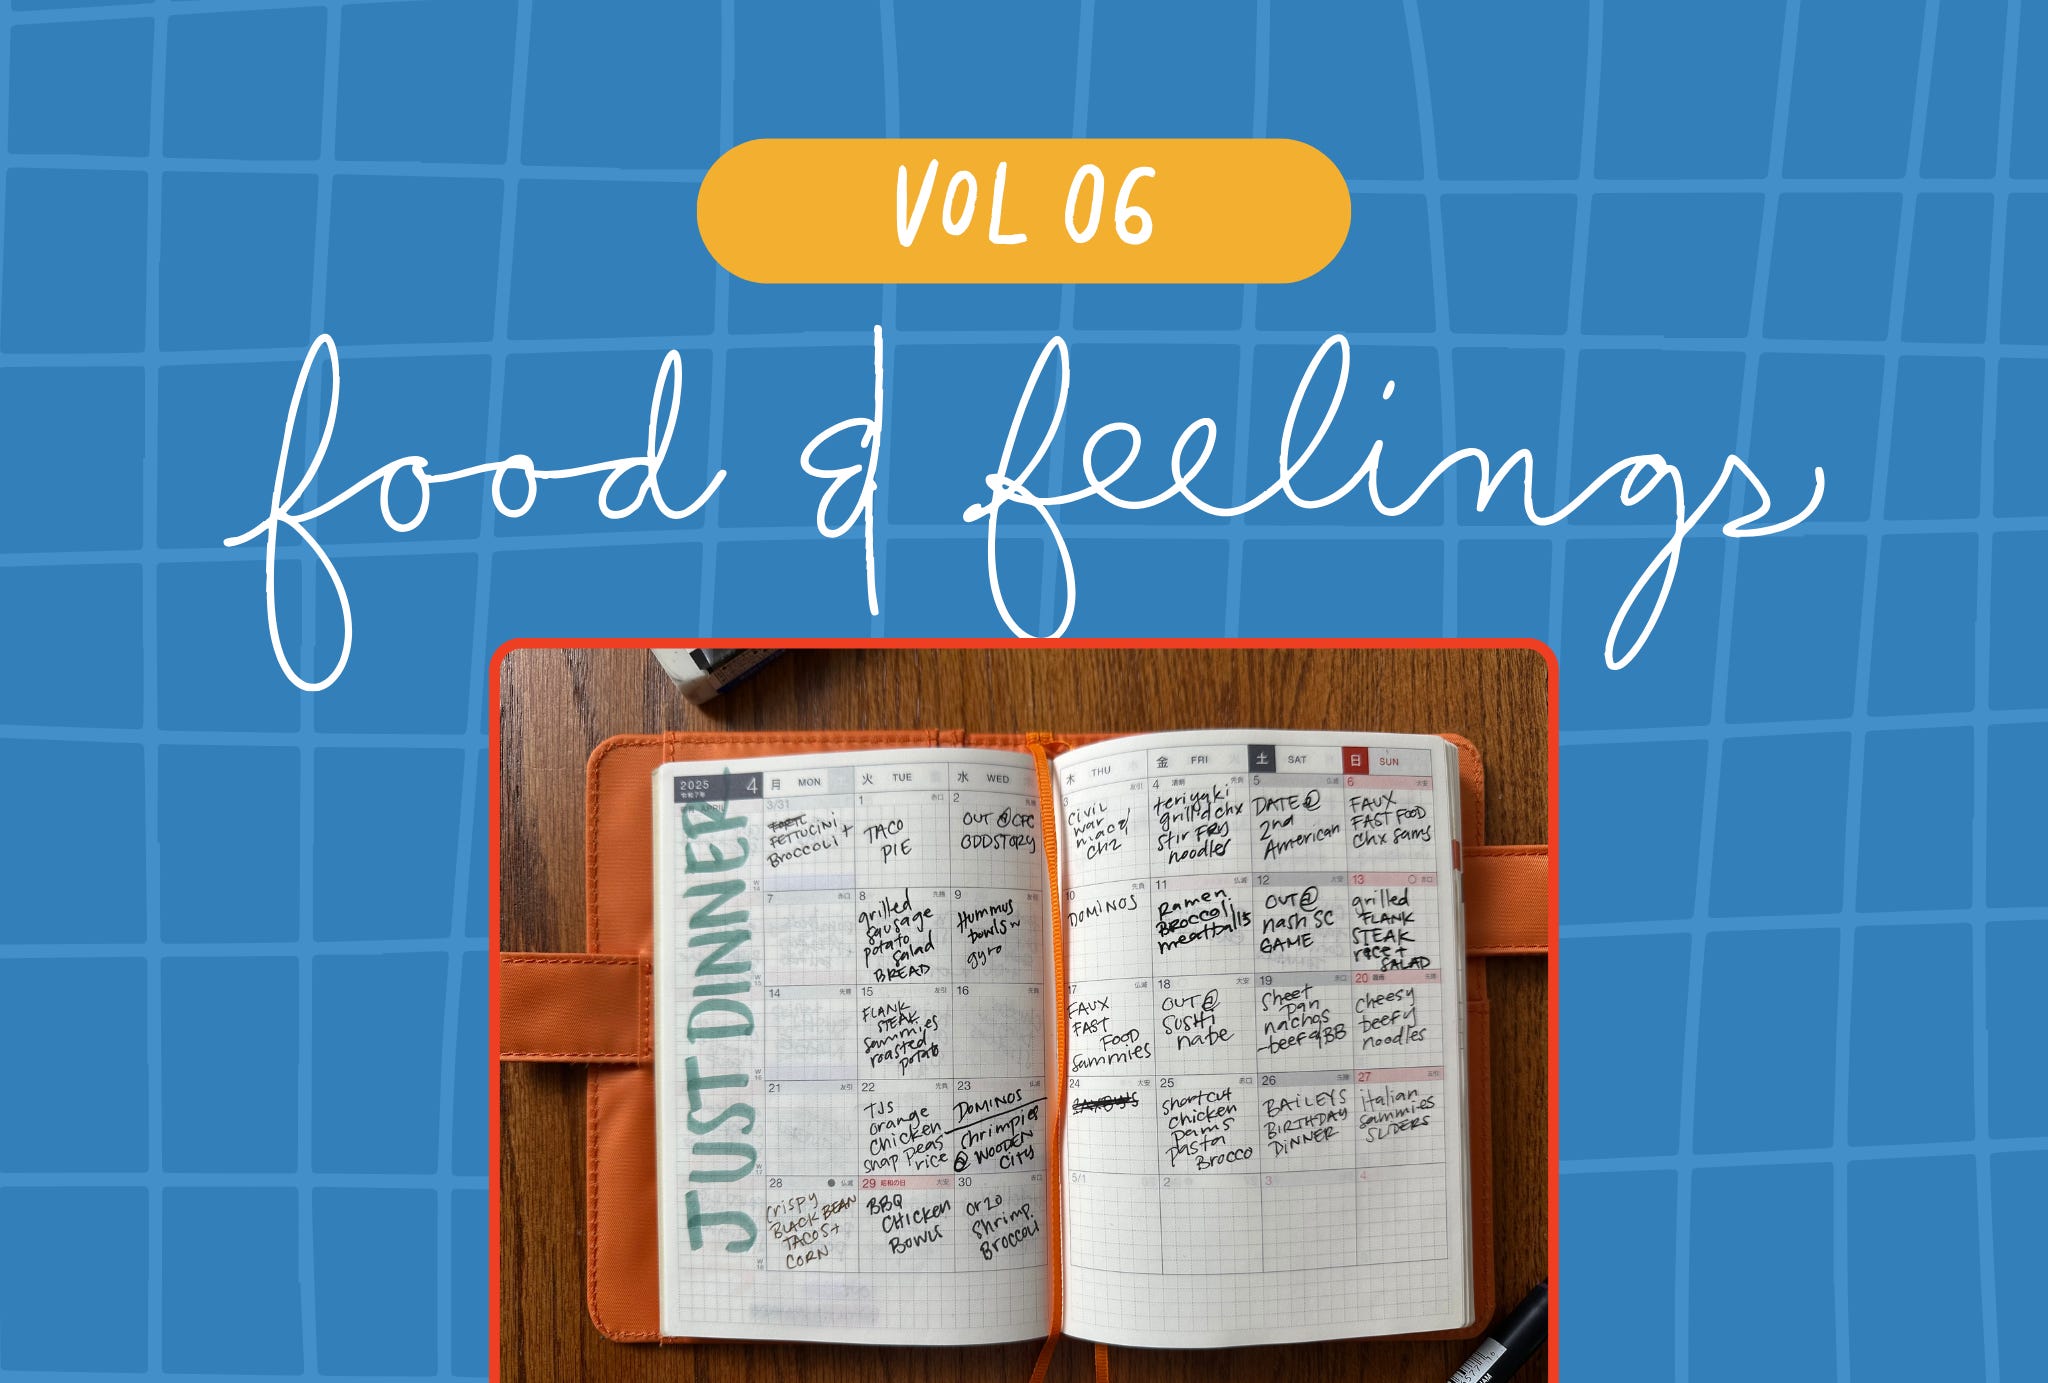 VOL 06
food & feelings
2025
4
月 MON
火 TUE
水 WED
木 THU
金 FRI
土 SAT
日 SUN
JUST DINNER
3/31
FETTUCINI +
BROCCOLI
1
TACO
PIE
2
OUT @ CFC
ODDSTORY
3
CIVIL
war
mac &
ch2
4
teriyaki
grilled chx
Stir FRY
noodles
5
DATE @
2nd
American
6
FAUX
FAST FOOD
Chx Sams
7
8
grilled
sausage
potato
salad
BREAD
9
Hummus
bowls w
gyro
10
DOMINOS
11
Ramen
BROCCOLI
meatballs
12
OUT @
nash SC
GAME
13
grilled
FLANK
STEAK
rice +
SALAD
14
15
FLANK
STEAK
sammies
roasted
potato
16
17
FAUX
FAST
FOOD
Sammies
18
OUT @
SUSHI
nabe
19
Sheet
pan
nachos
-beef & BB
20
cheesy
beefy
noodles
21
22
TJS
orange
Chicken
snap peas
rice
23
DOMINOS
Shrimpies
@ WOODEN
CITY
24
ZAXBYS
25
shortcut
chicken
parms
pasta
Brocco
26
BAILEYS
BIRTHDAY
DINNER
27
italian
sammies
SLIDERS
28
crispy
BLACK BEAN
TACOS +
CORN
29 昭和の日
BBQ
CHICKEN
BOWLS
30
orzo
Shrimp.
Broccoli
5/1
2
3
4